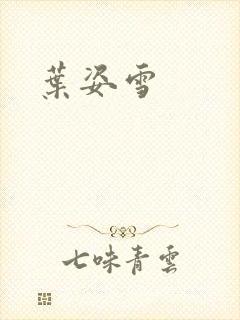 葉姿雪
七味青雲